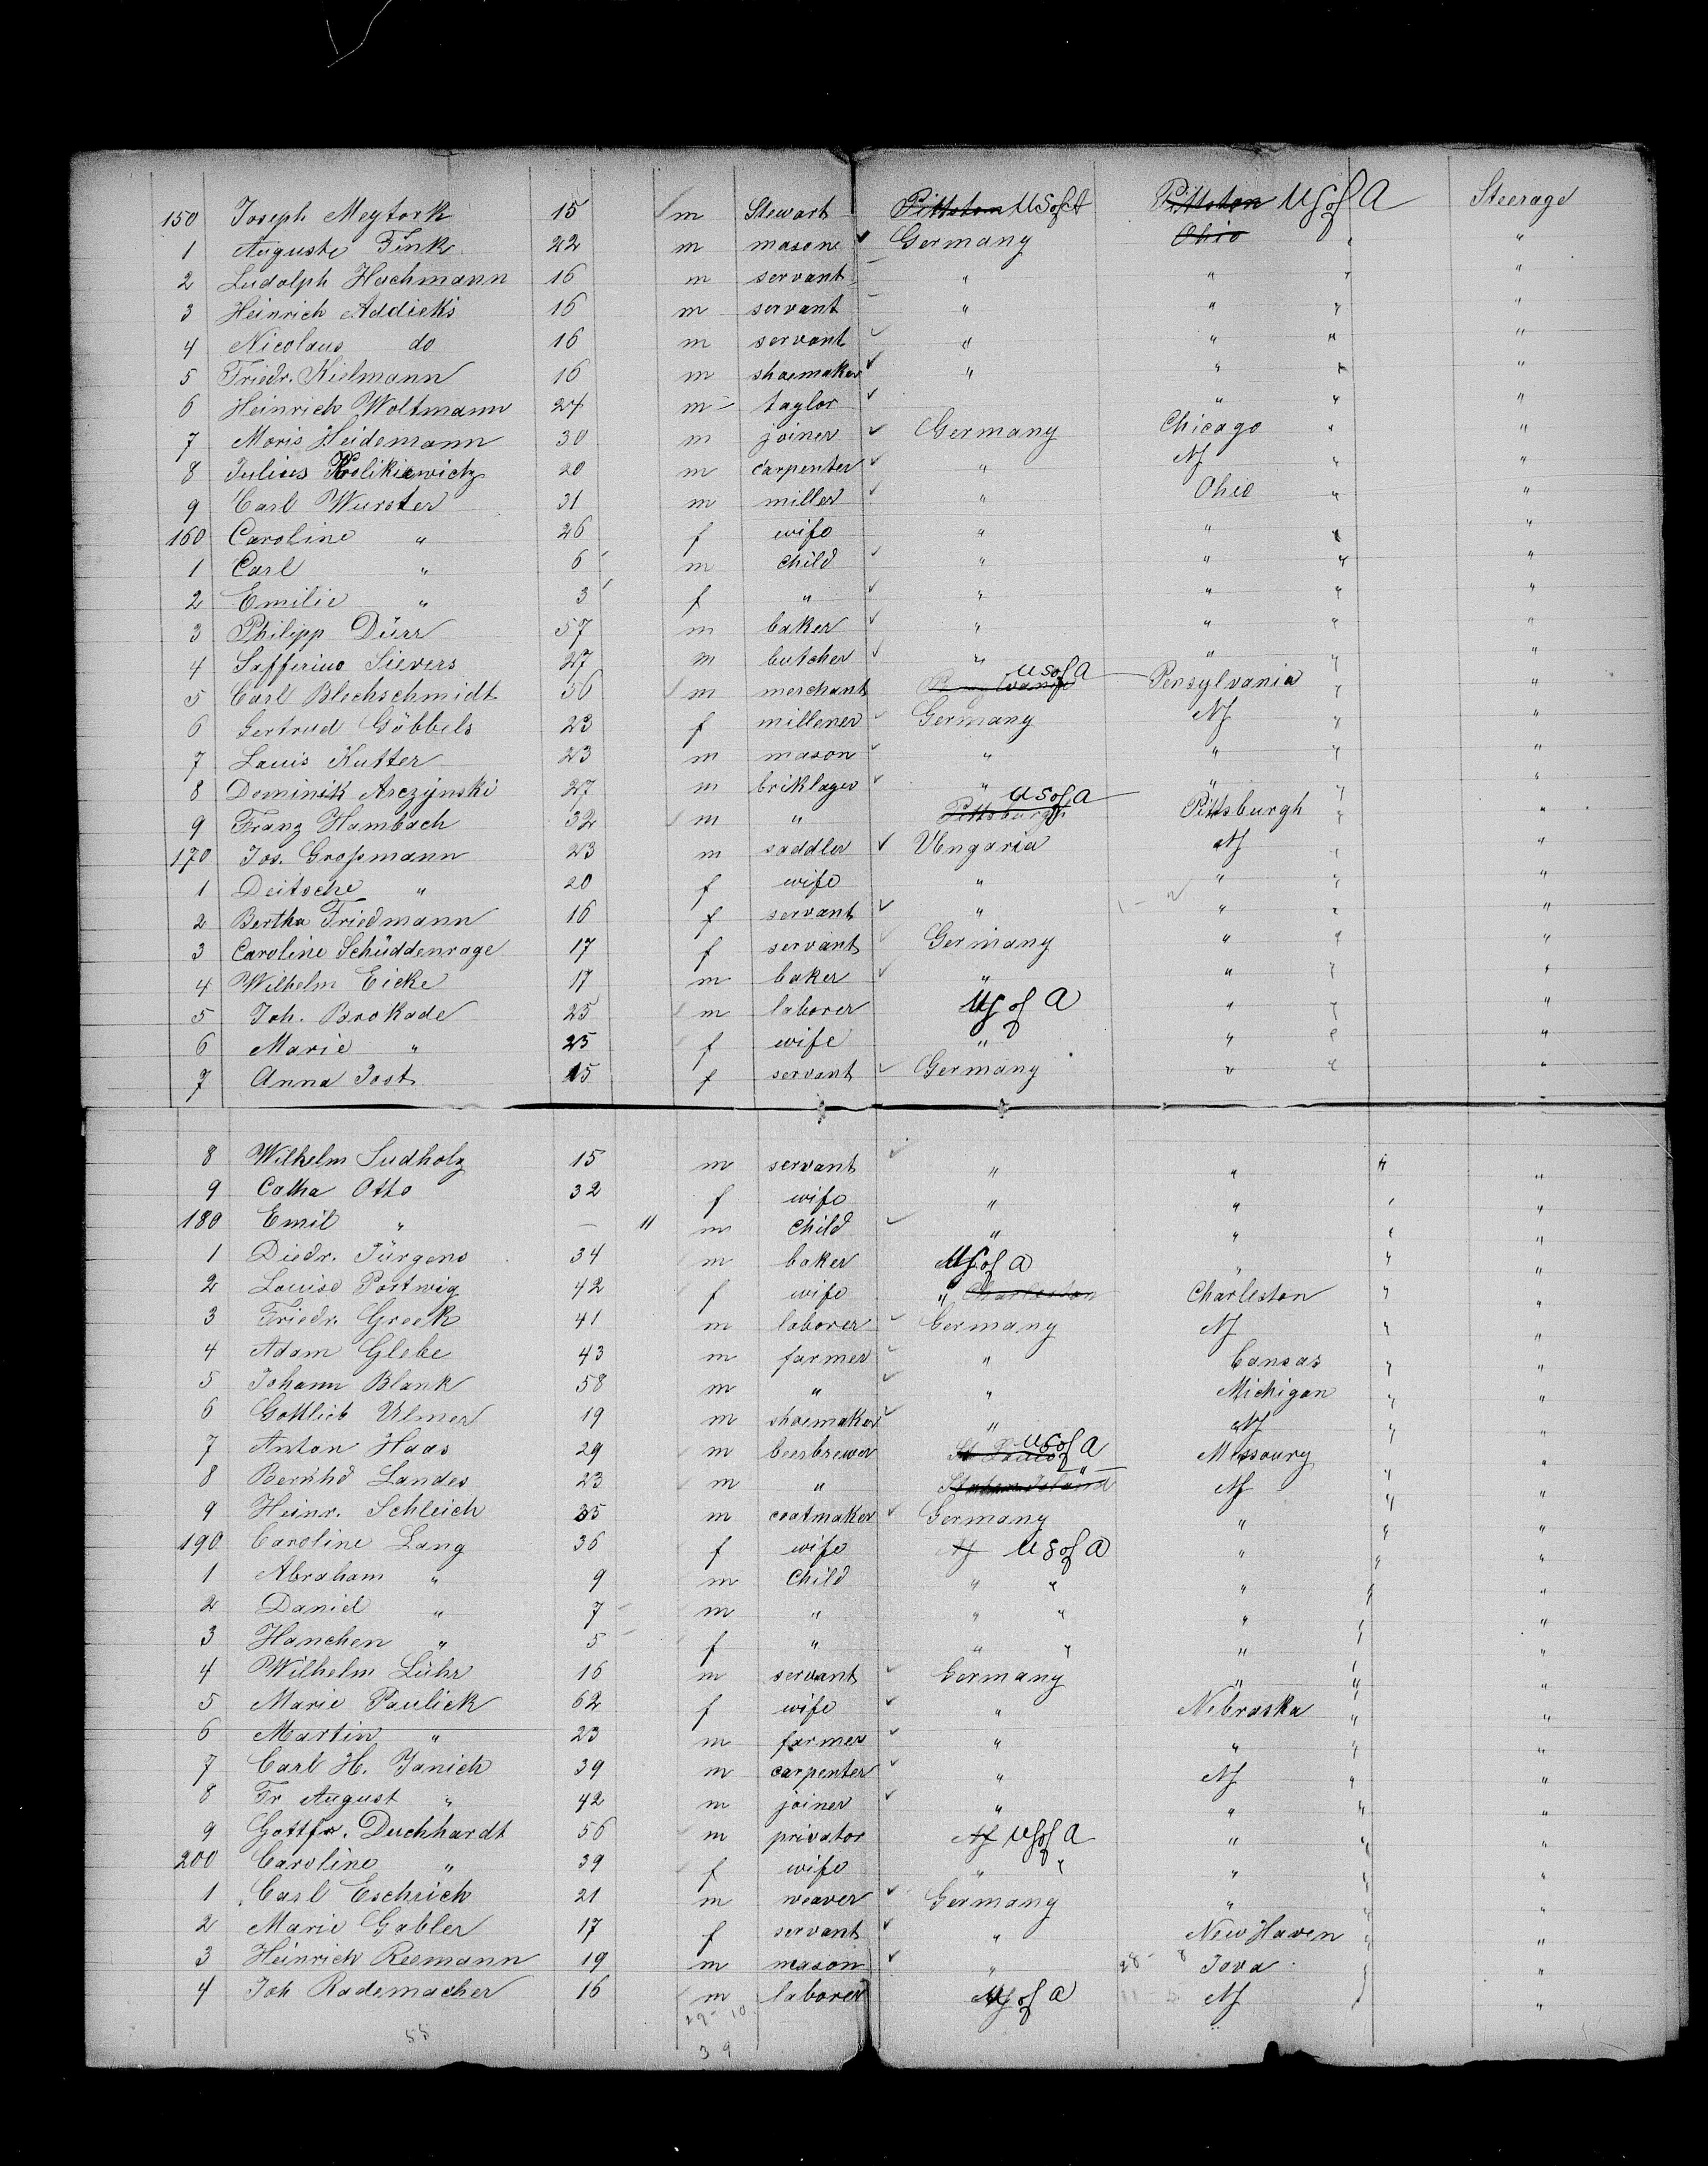 150 Joseph Meytork 15 m Stewart Pittston US of A Pittston US of A Steerage
1 Auguste Fink 22 m mason Germany Ohio " "
2 Ludolph Hachmann 16 m servant " " " "
3 Heinrich Addicks 16 m servant " " " "
4 Nicolaus do 16 m servant " " " "
5 Friedr. Kielmann 16 m shoemaker " " " "
6 Heinrich Woltmann 24 m taylor " " "
7 Moris Heidemann 30 m joiner Germany Chicago " "
8 Julius Kolikiewicz 20 m carpenter " NY " "
9 Carl Wurster 31 m miller " Ohio " "
160 Caroline " 26 f wife " " " "
1 Carl " 6 m child " " " "
2 Emilie " 3 f " " " " "
3 Philipp Dürr 57 m baker " " " "
4 Safferino Sievers 27 m butcher " " " "
5 Carl Blechschmidt 56 m merchant US of A Pensylvania " "
6 Gertrud Göbbels 23 f millener Germany NY " "
7 Louis Kutter 23 m mason " " " "
8 Dominik Arczynski 27 m briklager " " " "
9 Franz Hambach 32 m " Pittsburgh US of A Pittsburgh " "
170 Jos. Großmann 23 m saddler Ungaria NY " "
1 Deitsche " 20 f wife " " " "
2 Bertha Friedmann 16 f servant " " " "
3 Caroline Schüddenrage 17 f servant Germany " " "
4 Wilhelm Eicke 17 m baker " " " "
5 Joh. Brokade 25 m laborer US of A " " "
6 Marie " 25 f wife " " " "
7 Anna Jost 15 f servant Germany " " "
8 Wilhelm Sudholz 15 m servant " " " "
9 Catha Otto 32 f wife " " " "
180 Emil " — " m child " " " "
1 Diedr. Jürgens 34 m baker US of A " " "
2 Louise Portwig 42 f wife " Charleston Charleston " "
3 Friedr. Greek 41 m laborer Germany NY " "
4 Adam Glebe 43 m farmer " Cansas " "
5 Johann Blank 58 m " " Michigan " "
6 Gottlieb Ulmer 19 m shoemaker " NY " "
7 Anton Haas 29 m beerbrewer St Louis US of A Missoury "
8 Bernhd Landes 23 m " Staten Island " NY " "
9 Heinr. Schleich 35 m coatmaker Germany " " "
190 Caroline Lang 36 f wife NY US of A " " "
1 Abraham " 9 m child " " " " "
2 Daniel " 7 m " " " " " "
3 Hanchen " 5 f " " " " " "
4 Wilhelm Lühr 16 m servant Germany " " "
5 Marie Paulick 62 f wife " Nebraska " "
6 Martin " 23 m farmer " " " "
7 Carl H. Janich 39 m carpenter " NY " "
8 Fr August " 42 m joiner " " " "
9 Gottfr. Duchhardt 56 m privator NY US of A " " "
200 Caroline " 39 f wife " " " " "
1 Carl Eschrich 21 m weaver Germany " " "
2 Marie Gabler 17 f servant " New Haven " "
3 Heinrich Reemann 19 m mason " 28 - 8 Iova "
4 Joh Rademacher 16 m laborer US of A NY "
55 29 - 10
39